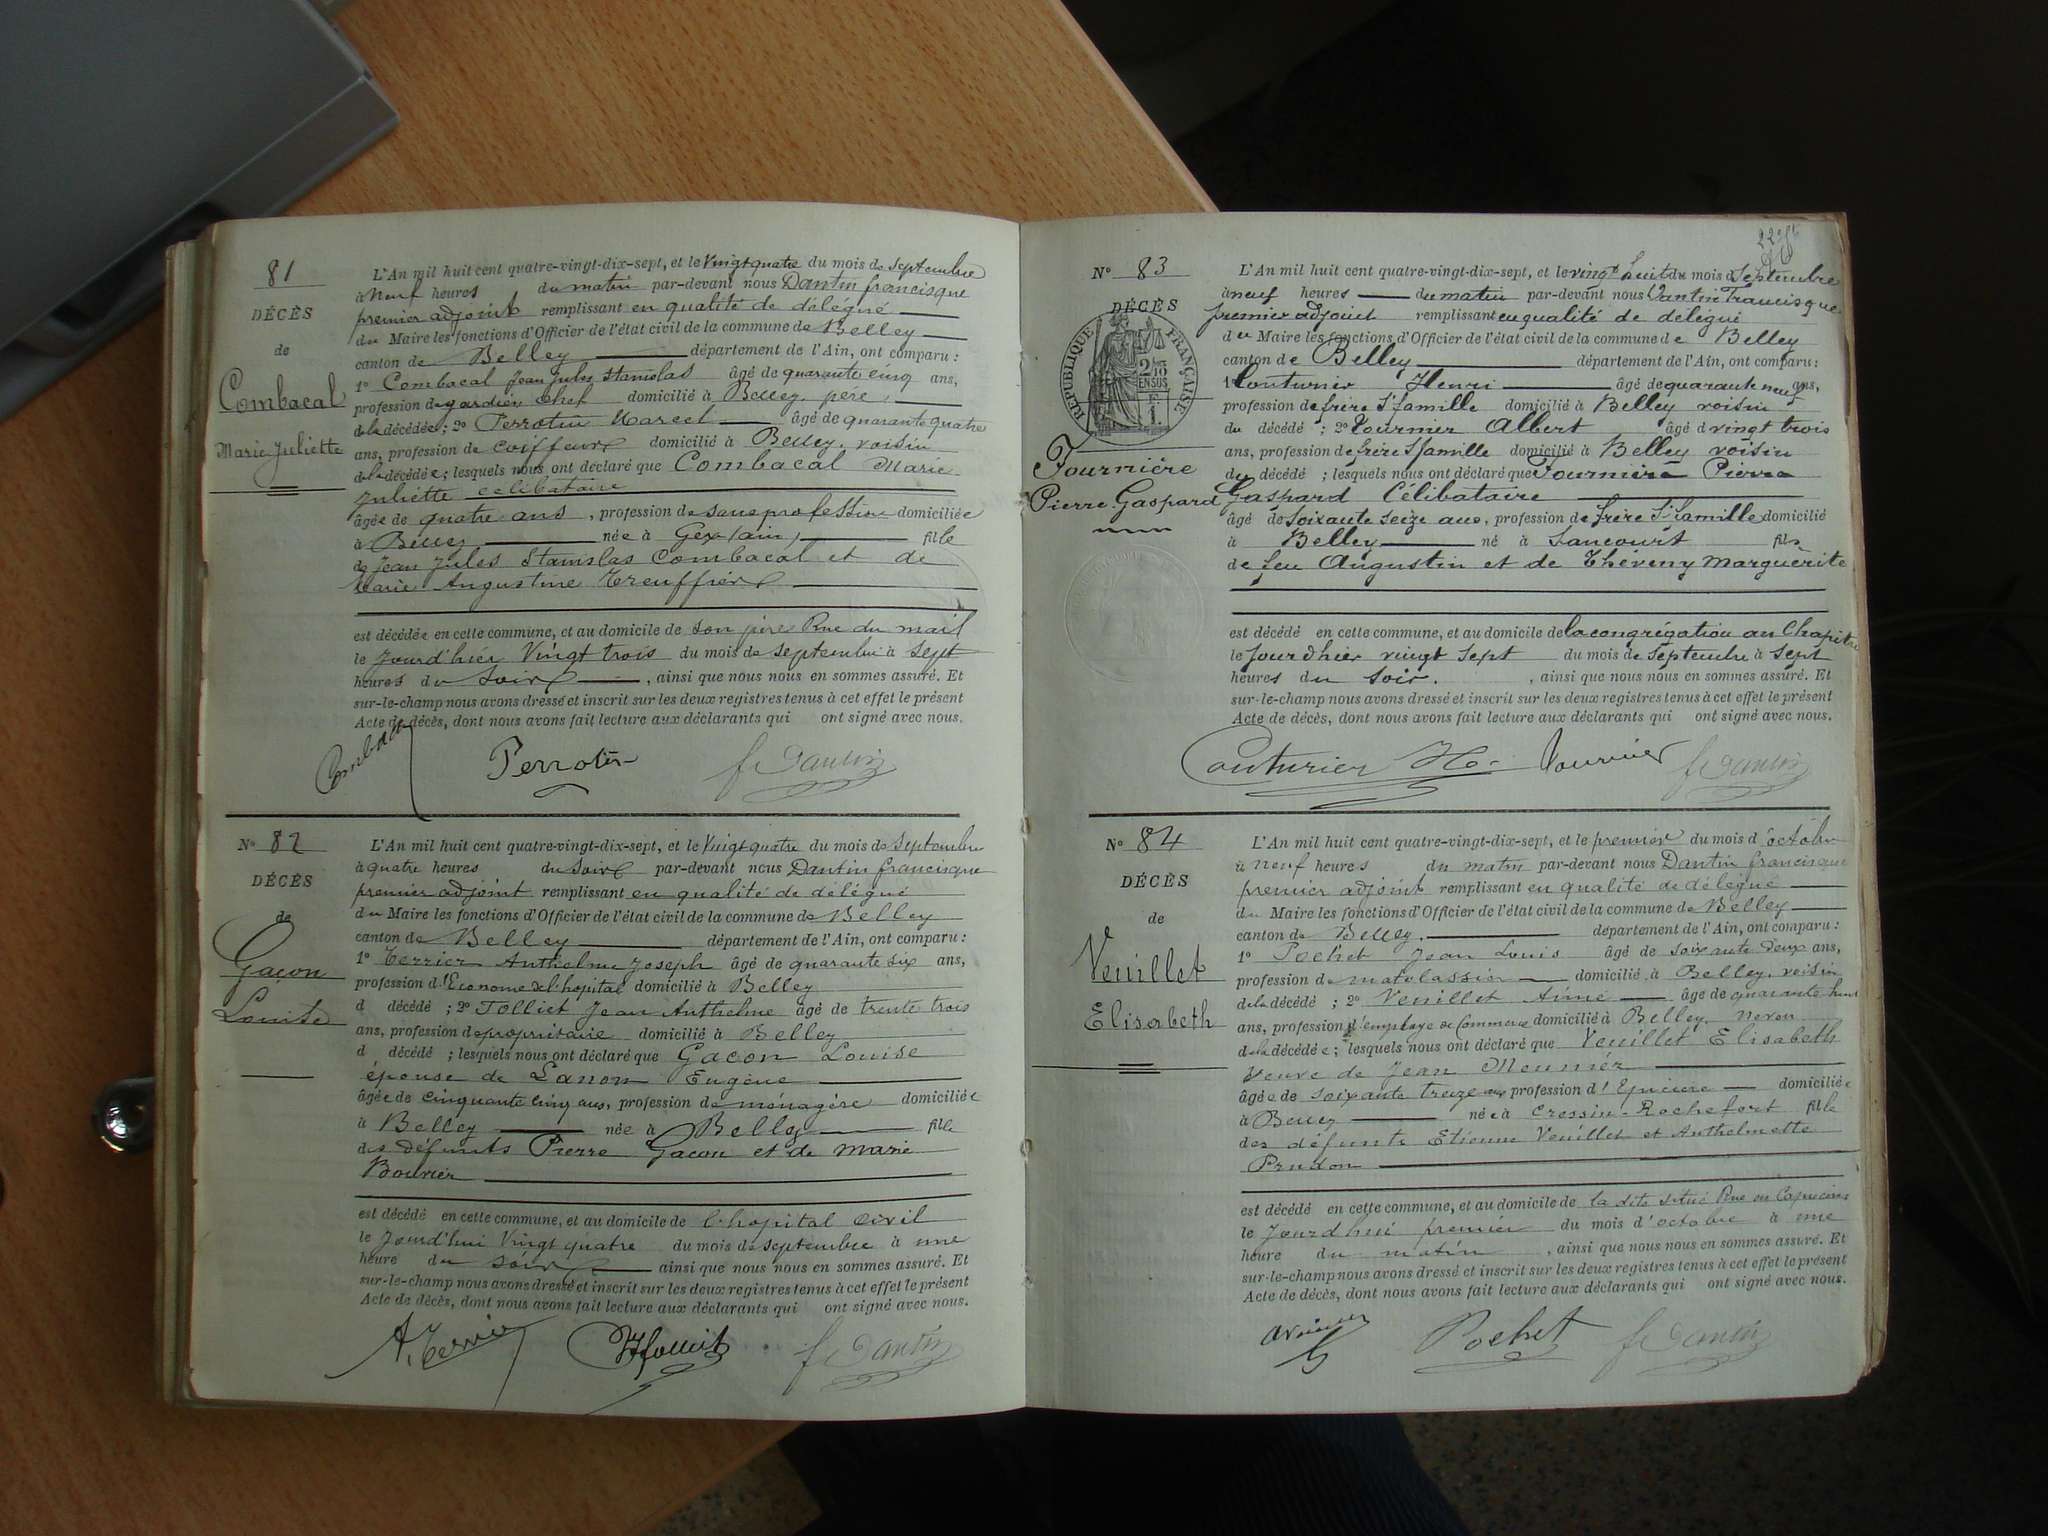 81
DÉCÈS
de
Combacal
Marie Juliette
L'An mil huit cent quatre-vingt-dix-sept, et le Vingt quatre du mois de septembre
à neuf heures du matin par-devant nous Dantin francisque
premier adjoint remplissant en qualité de délégué
du Maire les fonctions d'Officier de l'état civil de la commune de Belley
canton de Belley département de l'Ain, ont comparu :
1º Combacal Jean Jules Stanislas âgé de quarante cinq ans,
profession de gardien chef domicilié à Belley, père,
de la décédée ; 2º Perrotin Marcel âgé de quarante quatre
ans, profession de coiffeur domicilié à Belley, voisin
de la décédée ; lesquels nous ont déclaré que Combacal Marie
Juliette célibataire
âgée de quatre ans, profession de sans profession domiciliée
à Belley née à Gex (ain) fille
de Jean Jules Stanislas Combacal et de
Marie Angustine
est décédée en cette commune, et au domicile de son père Rue du mail
le Jourd'hier Vingt trois du mois de septembre à sept
heures du soir, ainsi que nous nous en sommes assuré. Et
sur-le-champ nous avons dressé et inscrit sur les deux registres tenus à cet effet le présent
Acte de décès, dont nous avons fait lecture aux déclarants qui ont signé avec nous.
Combacal Perrotin f Dantin
Nº 82
DÉCÈS
de
Gacon
Louise
L'An mil huit cent quatre-vingt-dix-sept, et le Vingt quatre du mois de septembre
à quatre heures du soir par-devant nous Dantin francisque
premier adjoint remplissant en qualité de délégué
du Maire les fonctions d'Officier de l'état civil de la commune de Belley
canton de Belley département de l'Ain, ont comparu :
1º Terrier Anthelme Joseph âgé de quarante six ans,
profession d'Econome de l'hopital domicilié à Belley
d décédé ; 2º Tolliet Jean Anthelme âgé de trente trois
ans, profession de propriétaire domicilié à Belley
d décédé ; lesquels nous ont déclaré que Gacon Louise
épouse de Lanon Eugène
âgée de cinquante cinq ans, profession de ménagère domiciliée
à Belley née à Belley fille
des défunts Pierre Gacon et de Marie
Bouvier
est décédé en cette commune, et au domicile de l'hopital civil
le Jourd'hui Vingt quatre du mois de septembre à une
heure du soir ainsi que nous nous en sommes assuré. Et
sur-le-champ nous avons dressé et inscrit sur les deux registres tenus à cet effet le présent
Acte de décès, dont nous avons fait lecture aux déclarants qui ont signé avec nous.
A. Terrier f Dantin
Nº 83
DÉCÈS
RÉPUBLIQUE FRANÇAISE
Fournière
Pierre Gaspard
L'An mil huit cent quatre-vingt-dix-sept, et le vingt huit du mois de Septembre
à neuf heures du matin par-devant nous Dantin Francisque
premier adjoint remplissant en qualité de délégué
du Maire les fonctions d'Officier de l'état civil de la commune de Belley
canton de Belley département de l'Ain, ont comparu :
1º Couturier Henri âgé de quarante neuf ans,
profession de frère Sᵗ famille domicilié à Belley voisin
du décédé ; 2º Tournier Albert âgé d vingt trois
ans, profession de frère Sᵗ famille domicilié à Belley voisin
du décédé ; lesquels nous ont déclaré que Fournière Pierre
Gaspard Célibataire
âgé de soixante seize ans, profession de frère Sᵗ famille domicilié
à Belley né à Lancourt fils
de feu Augustin et de Théveny Marguerite
est décédé en cette commune, et au domicile de la congrégation au Chapitre
le Jour d'hier vingt sept du mois de septembre à sept
heures du soir. , ainsi que nous nous en sommes assuré. Et
sur-le-champ nous avons dressé et inscrit sur les deux registres tenus à cet effet le présent
Acte de décès, dont nous avons fait lecture aux déclarants qui ont signé avec nous.
Couturier H. Tournier f Dantin
Nº 84
DÉCÈS
de
Veuillet
Elisabeth
L'An mil huit cent quatre-vingt-dix-sept, et le premier du mois d'octobre
à neuf heures du matin par-devant nous Dantin francisque
premier adjoint remplissant en qualité de délégué
du Maire les fonctions d'Officier de l'état civil de la commune de Belley
canton de Belley. département de l'Ain, ont comparu :
1º Pochet Jean Louis âgé de soixante deux ans,
profession de matelassier domicilié à Belley, voisin
de la décédé ; 2º Veuillet Aimé âgé de quarante huit
ans, profession d'employé de Commerce domicilié à Belley, neveu
de la décédée ; lesquels nous ont déclaré que Veuillet Elisabeth
veuve de Jean Meunier
âgée de soixante treize ans profession d'Epiciere domiciliée
à Belley née à Cressin-Rochefort fille
des défunts Etienne Veuillet et Anthelmette
Prudon
est décédé en cette commune, et au domicile de la dite situé Rue des Capucins
le Jourd'hui premier du mois d'octobre à une
heure du matin, ainsi que nous nous en sommes assuré. Et
sur-le-champ nous avons dressé et inscrit sur les deux registres tenus à cet effet le présent
Acte de décès, dont nous avons fait lecture aux déclarants qui ont signé avec nous.
Pochet f Dantin